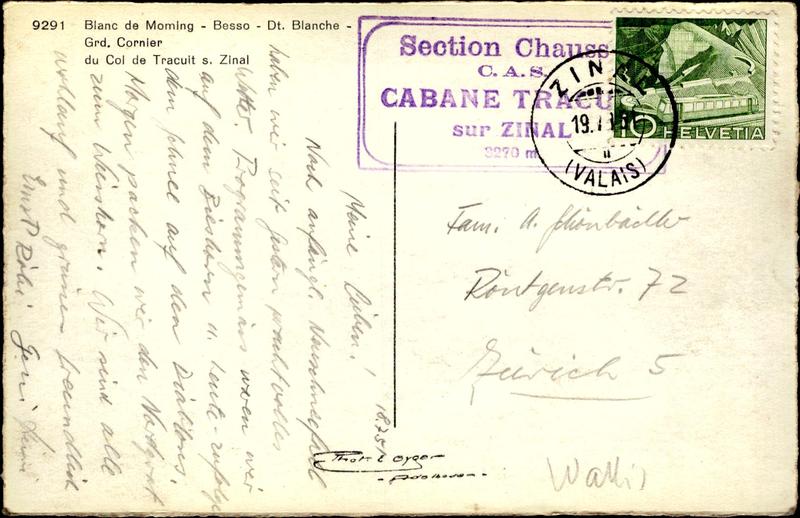 9291 Blanc de Moming - Besso - Dt. Blanche -
Grd. Cornier
du Col de Tracuit s. Zinal
Section Chauss
C.A.S.
CABANE TRACU
sur ZINAL
3270 m
ZINAL
19.
(VALAIS)
10 HELVETIA
18.
Meine Lieben!
Nach anfängl.
haben wir seit gestern prachtvolles
Wetter. Programmgemäss waren wir
auf dem Bishorn u. heute zufolge
dem auf den Diablons.
Morgen packen wir den Nordgrat
zum Weisshorn. Wir sind alle
wohlauf und grüssen freundlich
Ernst
Fam. A. Schönbächler
Röntgenstr. 72
Zürich 5
Phot. E. Gyger
- Adelboden -
Wallis